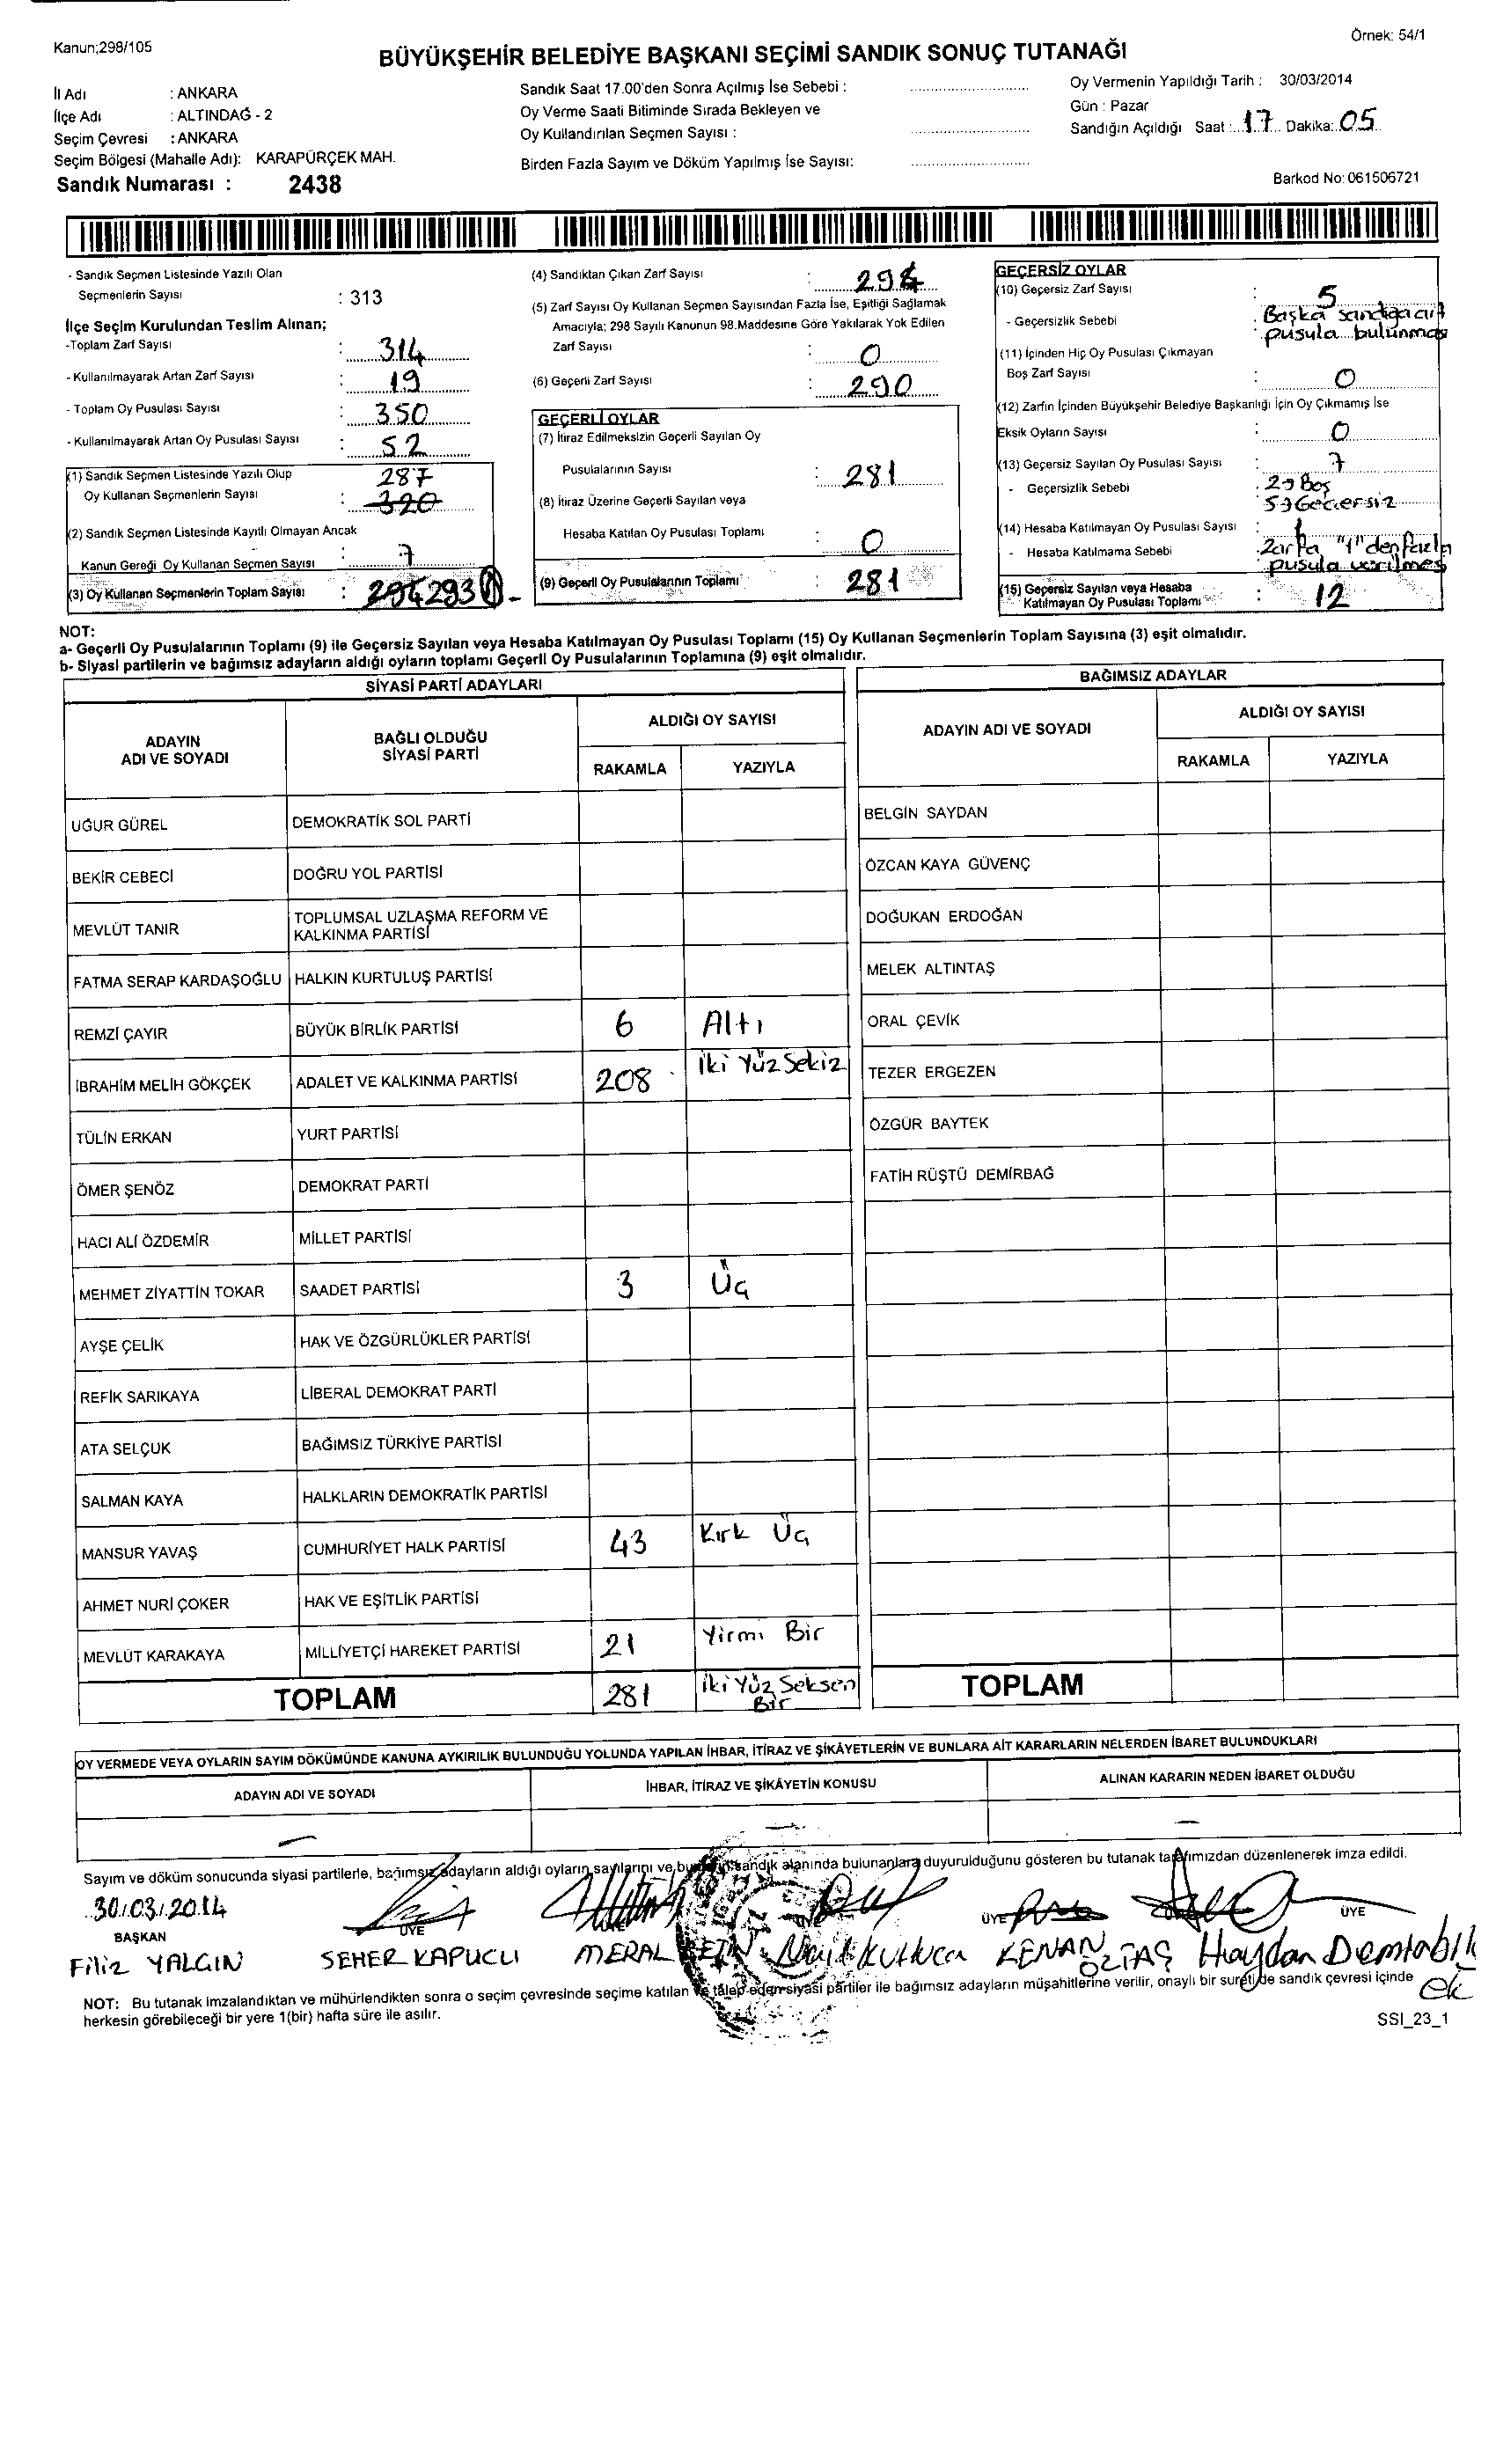 Kanun;298/105
Örnek: 54/1
BÜYÜKŞEHİR BELEDİYE BAŞKANI SEÇİMİ SANDIK SONUÇ TUTANAĞI
İl Adı : ANKARA
İlçe Adı : ALTINDAĞ - 2
Seçim Çevresi : ANKARA
Seçim Bölgesi (Mahalle Adı): KARAPÜRÇEK MAH.
Sandık Numarası : 2438
Sandık Saat 17.00'den Sonra Açılmış İse Sebebi :
Oy Verme Saati Bitiminde Sırada Bekleyen ve
Oy Kullandırılan Seçmen Sayısı :
Birden Fazla Sayım ve Döküm Yapılmış İse Sayısı:
Oy Vermenin Yapıldığı Tarih : 30/03/2014
Gün : Pazar
Sandığın Açıldığı Saat : 17 Dakika: 05
Barkod No: 061506721
- Sandık Seçmen Listesinde Yazılı Olan
Seçmenlerin Sayısı : 313
İlçe Seçim Kurulundan Teslim Alınan;
-Toplam Zarf Sayısı : 314
- Kullanılmayarak Artan Zarf Sayısı : 19
- Toplam Oy Pusulası Sayısı : 350
- Kullanılmayarak Artan Oy Pusulası Sayısı : 52
(1) Sandık Seçmen Listesinde Yazılı Olup 287
Oy Kullanan Seçmenlerin Sayısı : 320
(2) Sandık Seçmen Listesinde Kayıtlı Olmayan Ancak
Kanun Gereği Oy Kullanan Seçmen Sayısı : 7
(3) Oy Kullanan Seçmenlerin Toplam Sayısı : 293
(4) Sandıktan Çıkan Zarf Sayısı :
(5) Zarf Sayısı Oy Kullanan Seçmen Sayısından Fazla İse, Eşitliği Sağlamak
Amacıyla; 298 Sayılı Kanunun 98.Maddesine Göre Yakılarak Yok Edilen
Zarf Sayısı : 0
(6) Geçerli Zarf Sayısı : 290
GEÇERLİ OYLAR
(7) İtiraz Edilmeksizin Geçerli Sayılan Oy
Pusulalarının Sayısı : 281
(8) İtiraz Üzerine Geçerli Sayılan veya
Hesaba Katılan Oy Pusulası Toplamı : 0
(9) Geçerli Oy Pusulalarının Toplamı : 281
GEÇERSİZ OYLAR
(10) Geçersiz Zarf Sayısı : 5
- Geçersizlik Sebebi : Başka sandığa ait
pusula bulunması
(11) İçinden Hiç Oy Pusulası Çıkmayan
Boş Zarf Sayısı : 0
(12) Zarfın İçinden Büyükşehir Belediye Başkanlığı İçin Oy Çıkmamış İse
Eksik Oyların Sayısı : 0
(13) Geçersiz Sayılan Oy Pusulası Sayısı : 7
- Geçersizlik Sebebi : Boş
Geçersiz
(14) Hesaba Katılmayan Oy Pusulası Sayısı : 1
- Hesaba Katılmama Sebebi : Zarfa "1"den fazla
pusula verilmesi
(15) Geçersiz Sayılan veya Hesaba
Katılmayan Oy Pusulası Toplamı : 12
NOT:
a- Geçerli Oy Pusulalarının Toplamı (9) ile Geçersiz Sayılan veya Hesaba Katılmayan Oy Pusulası Toplamı (15) Oy Kullanan Seçmenlerin Toplam Sayısına (3) eşit olmalıdır.
b- Siyasi partilerin ve bağımsız adayların aldığı oyların toplamı Geçerli Oy Pusulalarının Toplamına (9) eşit olmalıdır.
SİYASİ PARTİ ADAYLARI
ADAYIN ADI VE SOYADI BAĞLI OLDUĞU SİYASİ PARTİ ALDIĞI OY SAYISI
RAKAMLA YAZIYLA
UĞUR GÜREL DEMOKRATİK SOL PARTİ
BEKİR CEBECİ DOĞRU YOL PARTİSİ
MEVLÜT TANIR TOPLUMSAL UZLAŞMA REFORM VE KALKINMA PARTİSİ
FATMA SERAP KARDAŞOĞLU HALKIN KURTULUŞ PARTİSİ
REMZİ ÇAYIR BÜYÜK BİRLİK PARTİSİ 6 Altı
İBRAHİM MELİH GÖKÇEK ADALET VE KALKINMA PARTİSİ 208 İki Yüz Sekiz
TÜLİN ERKAN YURT PARTİSİ
ÖMER ŞENÖZ DEMOKRAT PARTİ
HACI ALİ ÖZDEMİR MİLLET PARTİSİ
MEHMET ZİYATTİN TOKAR SAADET PARTİSİ 3 Üç
AYŞE ÇELİK HAK VE ÖZGÜRLÜKLER PARTİSİ
REFİK SARIKAYA LİBERAL DEMOKRAT PARTİ
ATA SELÇUK BAĞIMSIZ TÜRKİYE PARTİSİ
SALMAN KAYA HALKLARIN DEMOKRATİK PARTİSİ
MANSUR YAVAŞ CUMHURİYET HALK PARTİSİ 43 Kırk Üç
AHMET NURİ ÇOKER HAK VE EŞİTLİK PARTİSİ
MEVLÜT KARAKAYA MİLLİYETÇİ HAREKET PARTİSİ 21 Yirmi Bir
TOPLAM 281 İki Yüz Seksen Bir
BAĞIMSIZ ADAYLAR
ADAYIN ADI VE SOYADI ALDIĞI OY SAYISI
RAKAMLA YAZIYLA
BELGİN SAYDAN
ÖZCAN KAYA GÜVENÇ
DOĞUKAN ERDOĞAN
MELEK ALTINTAŞ
ORAL ÇEVİK
TEZER ERGEZEN
ÖZGÜR BAYTEK
FATİH RÜŞTÜ DEMİRBAĞ
TOPLAM
OY VERMEDE VEYA OYLARIN SAYIM DÖKÜMÜNDE KANUNA AYKIRILIK BULUNDUĞU YOLUNDA YAPILAN İHBAR, İTİRAZ VE ŞİKÂYETLERİN VE BUNLARA AİT KARARLARIN NELERDEN İBARET BULUNDUKLARI
ADAYIN ADI VE SOYADI İHBAR, İTİRAZ VE ŞİKÂYETİN KONUSU ALINAN KARARIN NEDEN İBARET OLDUĞU
Sayım ve döküm sonucunda siyasi partilerle, bağımsız adayların aldığı oyların sayılarını ve sandık alanında bulunanlara duyurulduğunu gösteren bu tutanak tarafımızdan düzenlenerek imza edildi.
30/03/2014
BAŞKAN ÜYE ÜYE ÜYE
Filiz YALÇIN SEHER KAPUCU MERAL KENAN ÖZTAŞ Haydan
NOT: Bu tutanak imzalandıktan ve mühürlendikten sonra o seçim çevresinde seçime katılan ve talep eden siyasi partiler ile bağımsız adayların müşahitlerine verilir, onaylı bir sureti de sandık çevresi içinde
herkesin görebileceği bir yere 1(bir) hafta süre ile asılır.
SSI_23_1